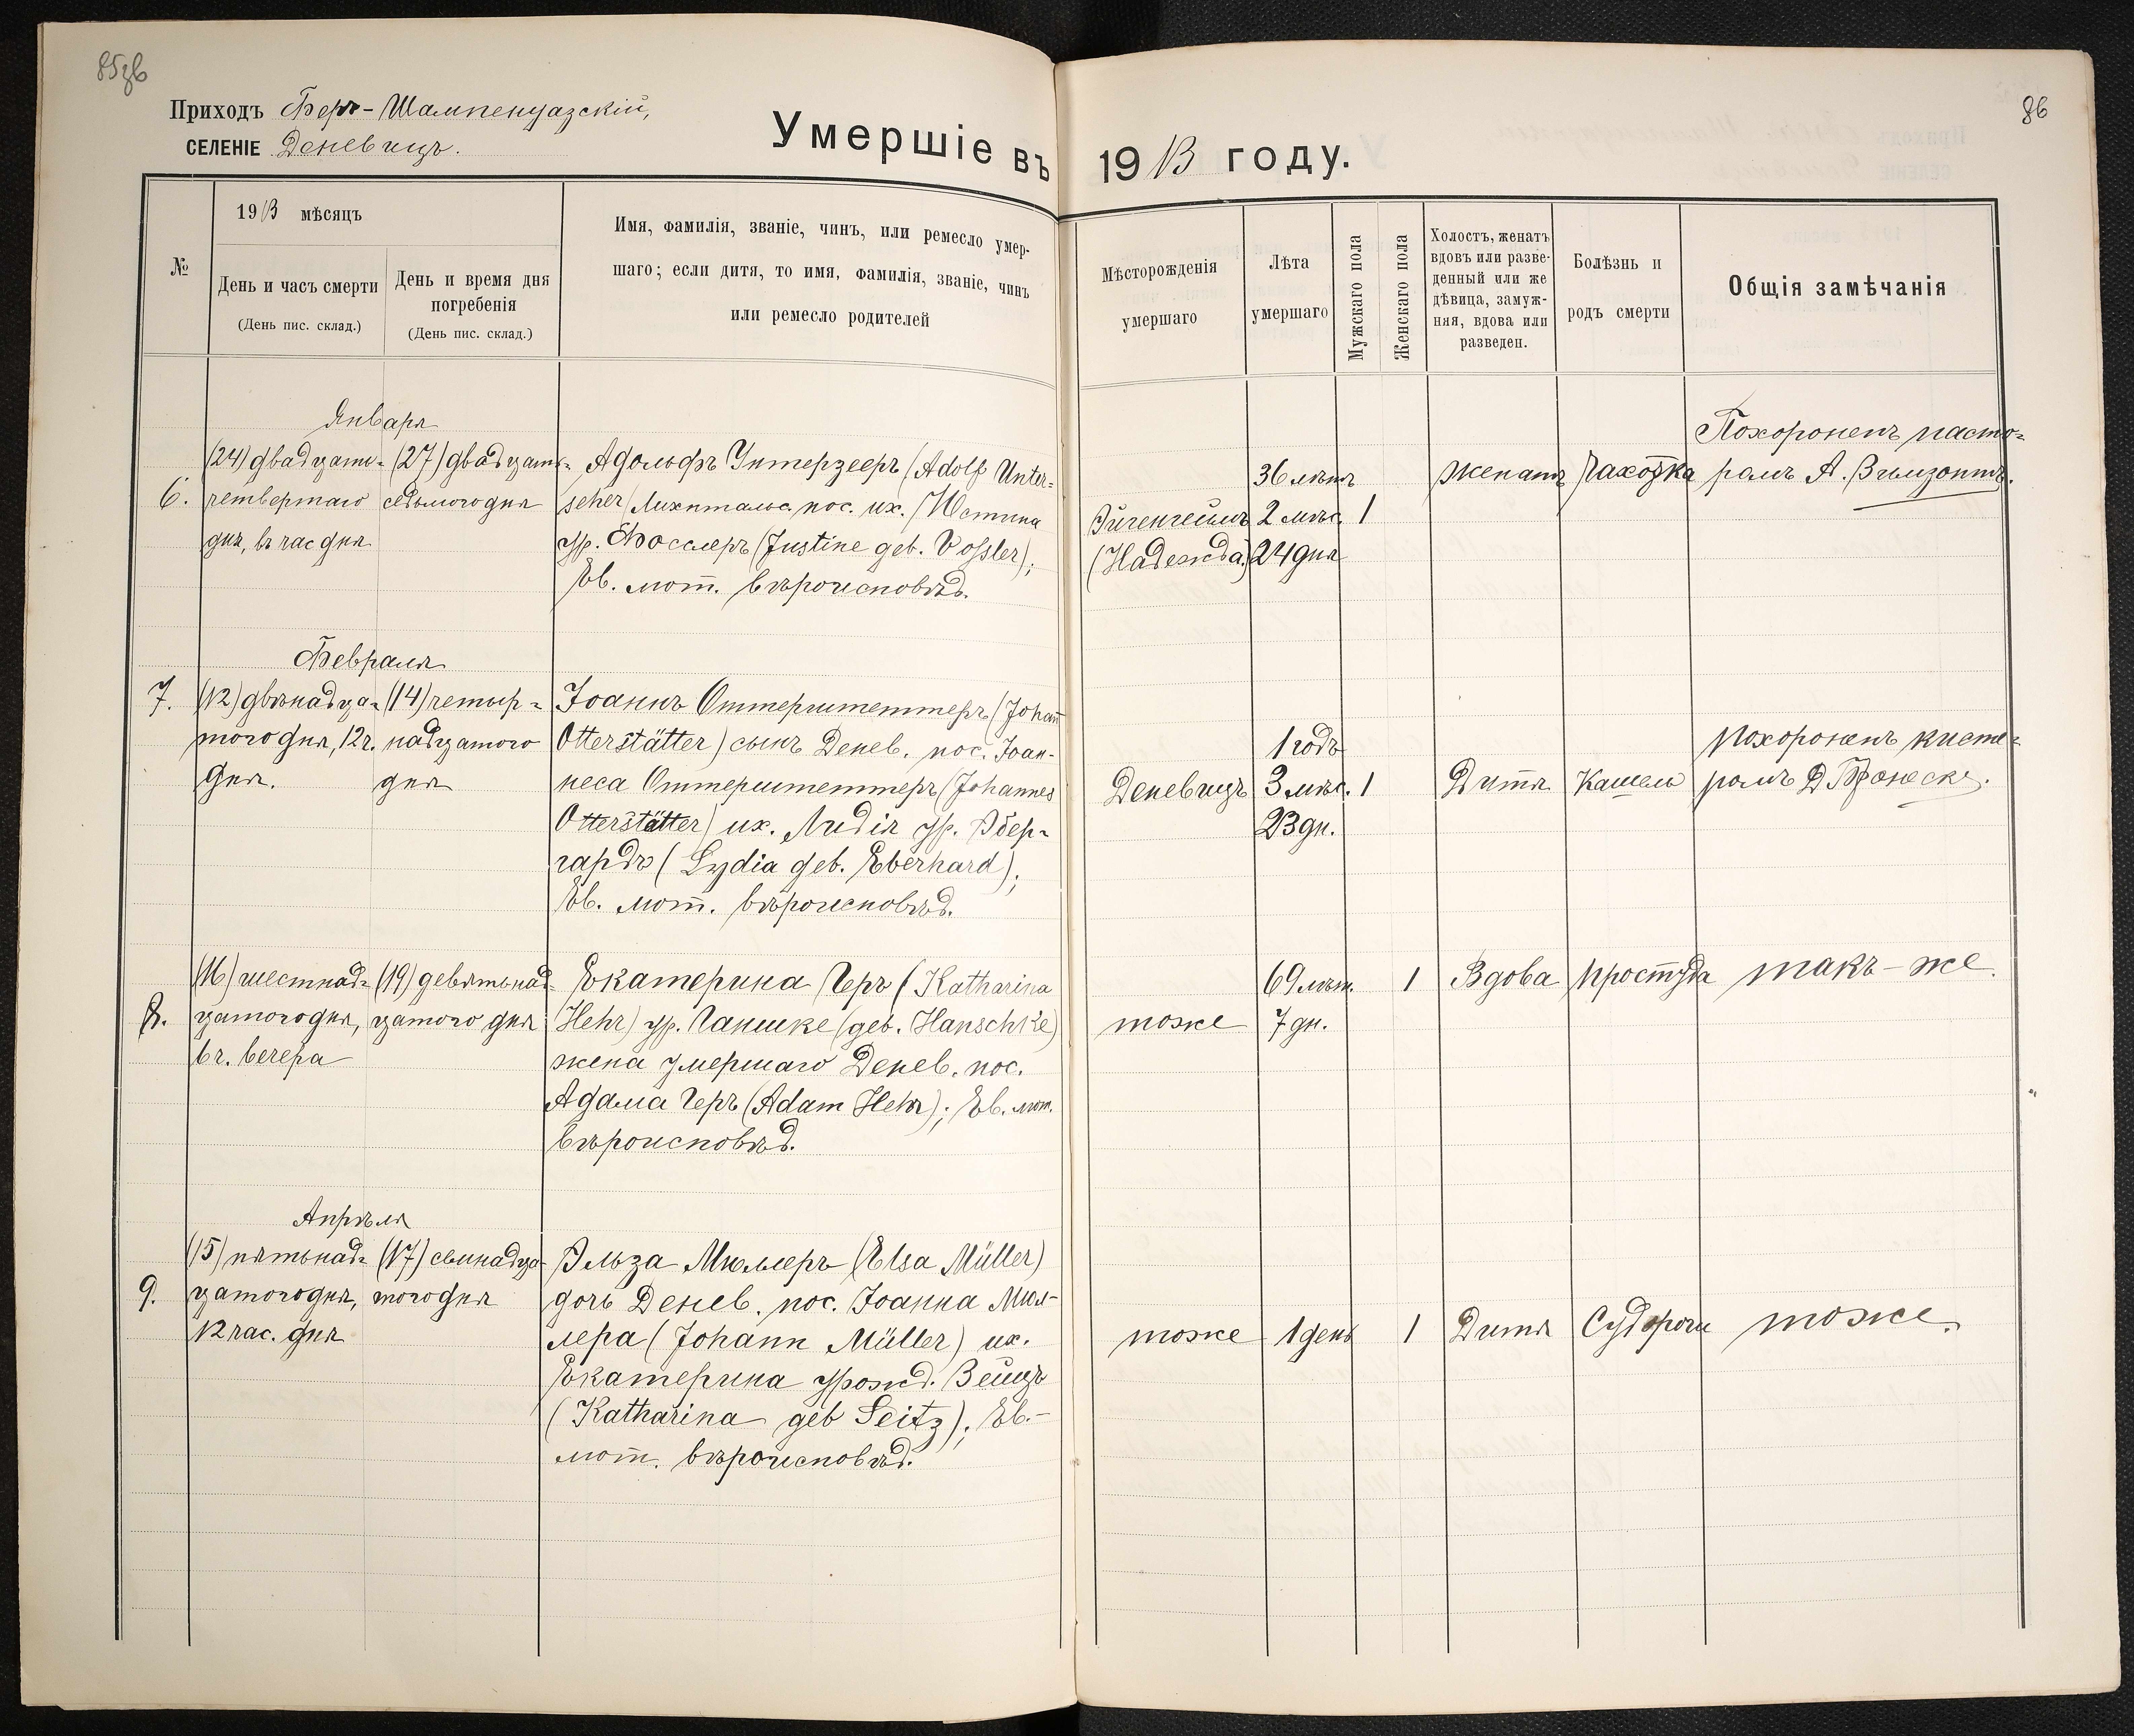 85зв
86
ПриходъФеръ-Шампенуазскій,
СЕЛЕНІЕ Деневицъ.
Умершіе въ 1913 году.
№
1913 мѣсяцъ
День и часъ смерти
(День пис. склад.)
День и время дня
погребенія
(День пис. склад.)
Имя, фамилія, званіе, чинъ, или ремесло умер-
шаго; если дитя, то имя, фамилія, званіе, чинъ
или ремесло родителей
Мѣсторожденія
умершаго
Лѣта
умершаго
Мужскаго пола
Женскаго пола
Холостъ, женатъ
вдовъ или разве-
денный или же
дѣвица, замуж-
няя, вдова или
разведен.
Болѣзнь и
родъ смерти
Общія замѣчанія
Января
6.
(24) двадцать-
четвертаго
дня, въ час дня
(27) двадцать-
седьмого дня
Адольфъ Унтерзееръ (Adolf Unter-
seher) Лихттальс. пос. их. Юстина
ур. Фосслеръ (Justine geb. Vossler);
Ев. лют. вѣроисповѣд.
Эйгенгеймъ
(Надежда)
36 лѣтъ
2 мѣс.
24 дня
1
женатъ
Чахотка
Похороненъ пасто-
ромъ А.
Февраля
7.
(12) двѣнадца-
того дня, 12 ч.
дня.
(14) четыр-
надцатого
дня
Іоаннъ Оттерштеттеръ (Johan̅
Otterstätter) сынъ Денев. пос. Іоан-
неса Оттерштеттеръ (Johannes
Otterstätter) их. Лидія ур. Эбер-
гардъ (Lydia geb. Eberhard);
Ев. лют. вѣроисповѣд.
Деневицъ
1 годъ
3 мѣс.
23 дн.
1
Дитя
Кашель
похороненъ кисте-
ромъ Д.
8.
(16) шестнад-
цатого дня,
6 ч. вечера
(19) девятьнад-
цатого дня
Екатерина Геръ (Katharina
Hehr) ур. Ганшке (geb. Hanschke)
жена умершаго Денев. пос.
Адама Геръ (Adam Hehr); Ев. лют.
вѣроисповѣд.
тоже
69 лѣт.
7 дн.
1
Вдова
простуда
такъ-же.
Апрѣля
9.
(15) пятьнад-
цатого дня,
12 час. дня
(17) семнадца-
того дня
Эльза Мюллеръ (Elsa Müller)
дочь Денев. пос. Іоанна Мюл-
лера (Johann Müller) их.
Екатерина урожд. Зейцъ
(Katharina geb Seitz); Ев.-
лют. вѣроисповѣд.
тоже
1 день
1
Дитя
Судороги
тоже.